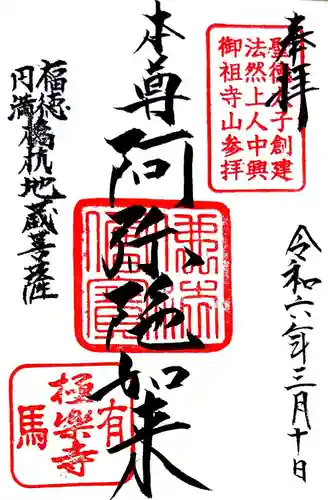 奉拝
聖徳太子創建
法然上人中興
御祖寺山参拝
令和六年三月十日
本尊阿弥陀如来
福徳
円満
橋杭地蔵菩薩
有馬
極楽寺